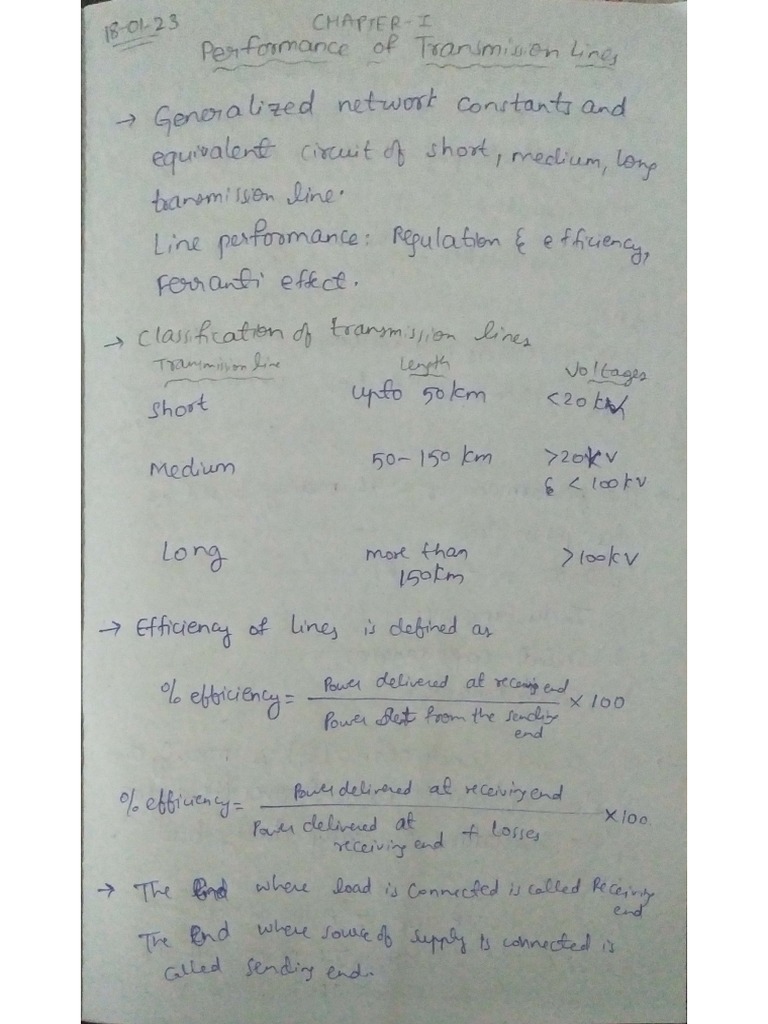 18-01-23
CHAPTER-I
Performance of Transmission Lines
→ Generalized network constants and
equivalent circuit of short, medium, long
transmission line.
Line performance: Regulation & efficiency,
Ferranti effect.
→ Classification of transmission lines
Transmission line Length Voltages
Short upto 50km <20 kV
Medium 50-150 km >20kV
& <100kV
Long more than >100kV
150km
→ Efficiency of lines is defined as
% efficiency = Power delivered at receiving end × 100
Power sent from the sending
end
% efficiency = Power delivered at receiving end ×100
Power delivered at + Losses
receiving end
→ The End where load is connected is called Receiving
end
The End where source of supply is connected is
called sending end.